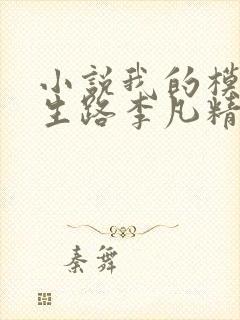 小说我的模
生路李凡精
秦舞